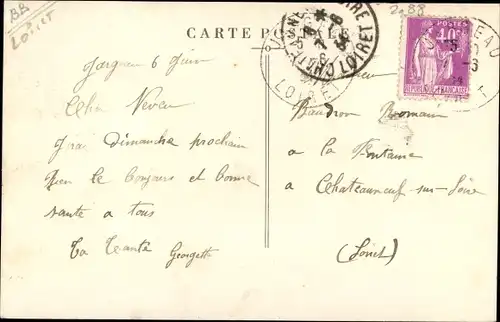 BR
Loiret
2188
CARTE POSTALE
LOIRET
POSTES
40c
REPUBLIQUE FRANÇAISE
Jargeau 6 Juin
Cher Neveu
J'irai dimanche prochain
bien le bonjour et bonne
santé a tous
Ta Tante Georgette
Monsieur
Baudron Romain
a la Fontaine
a Chateauneuf-sur-Loire
(Loiret)